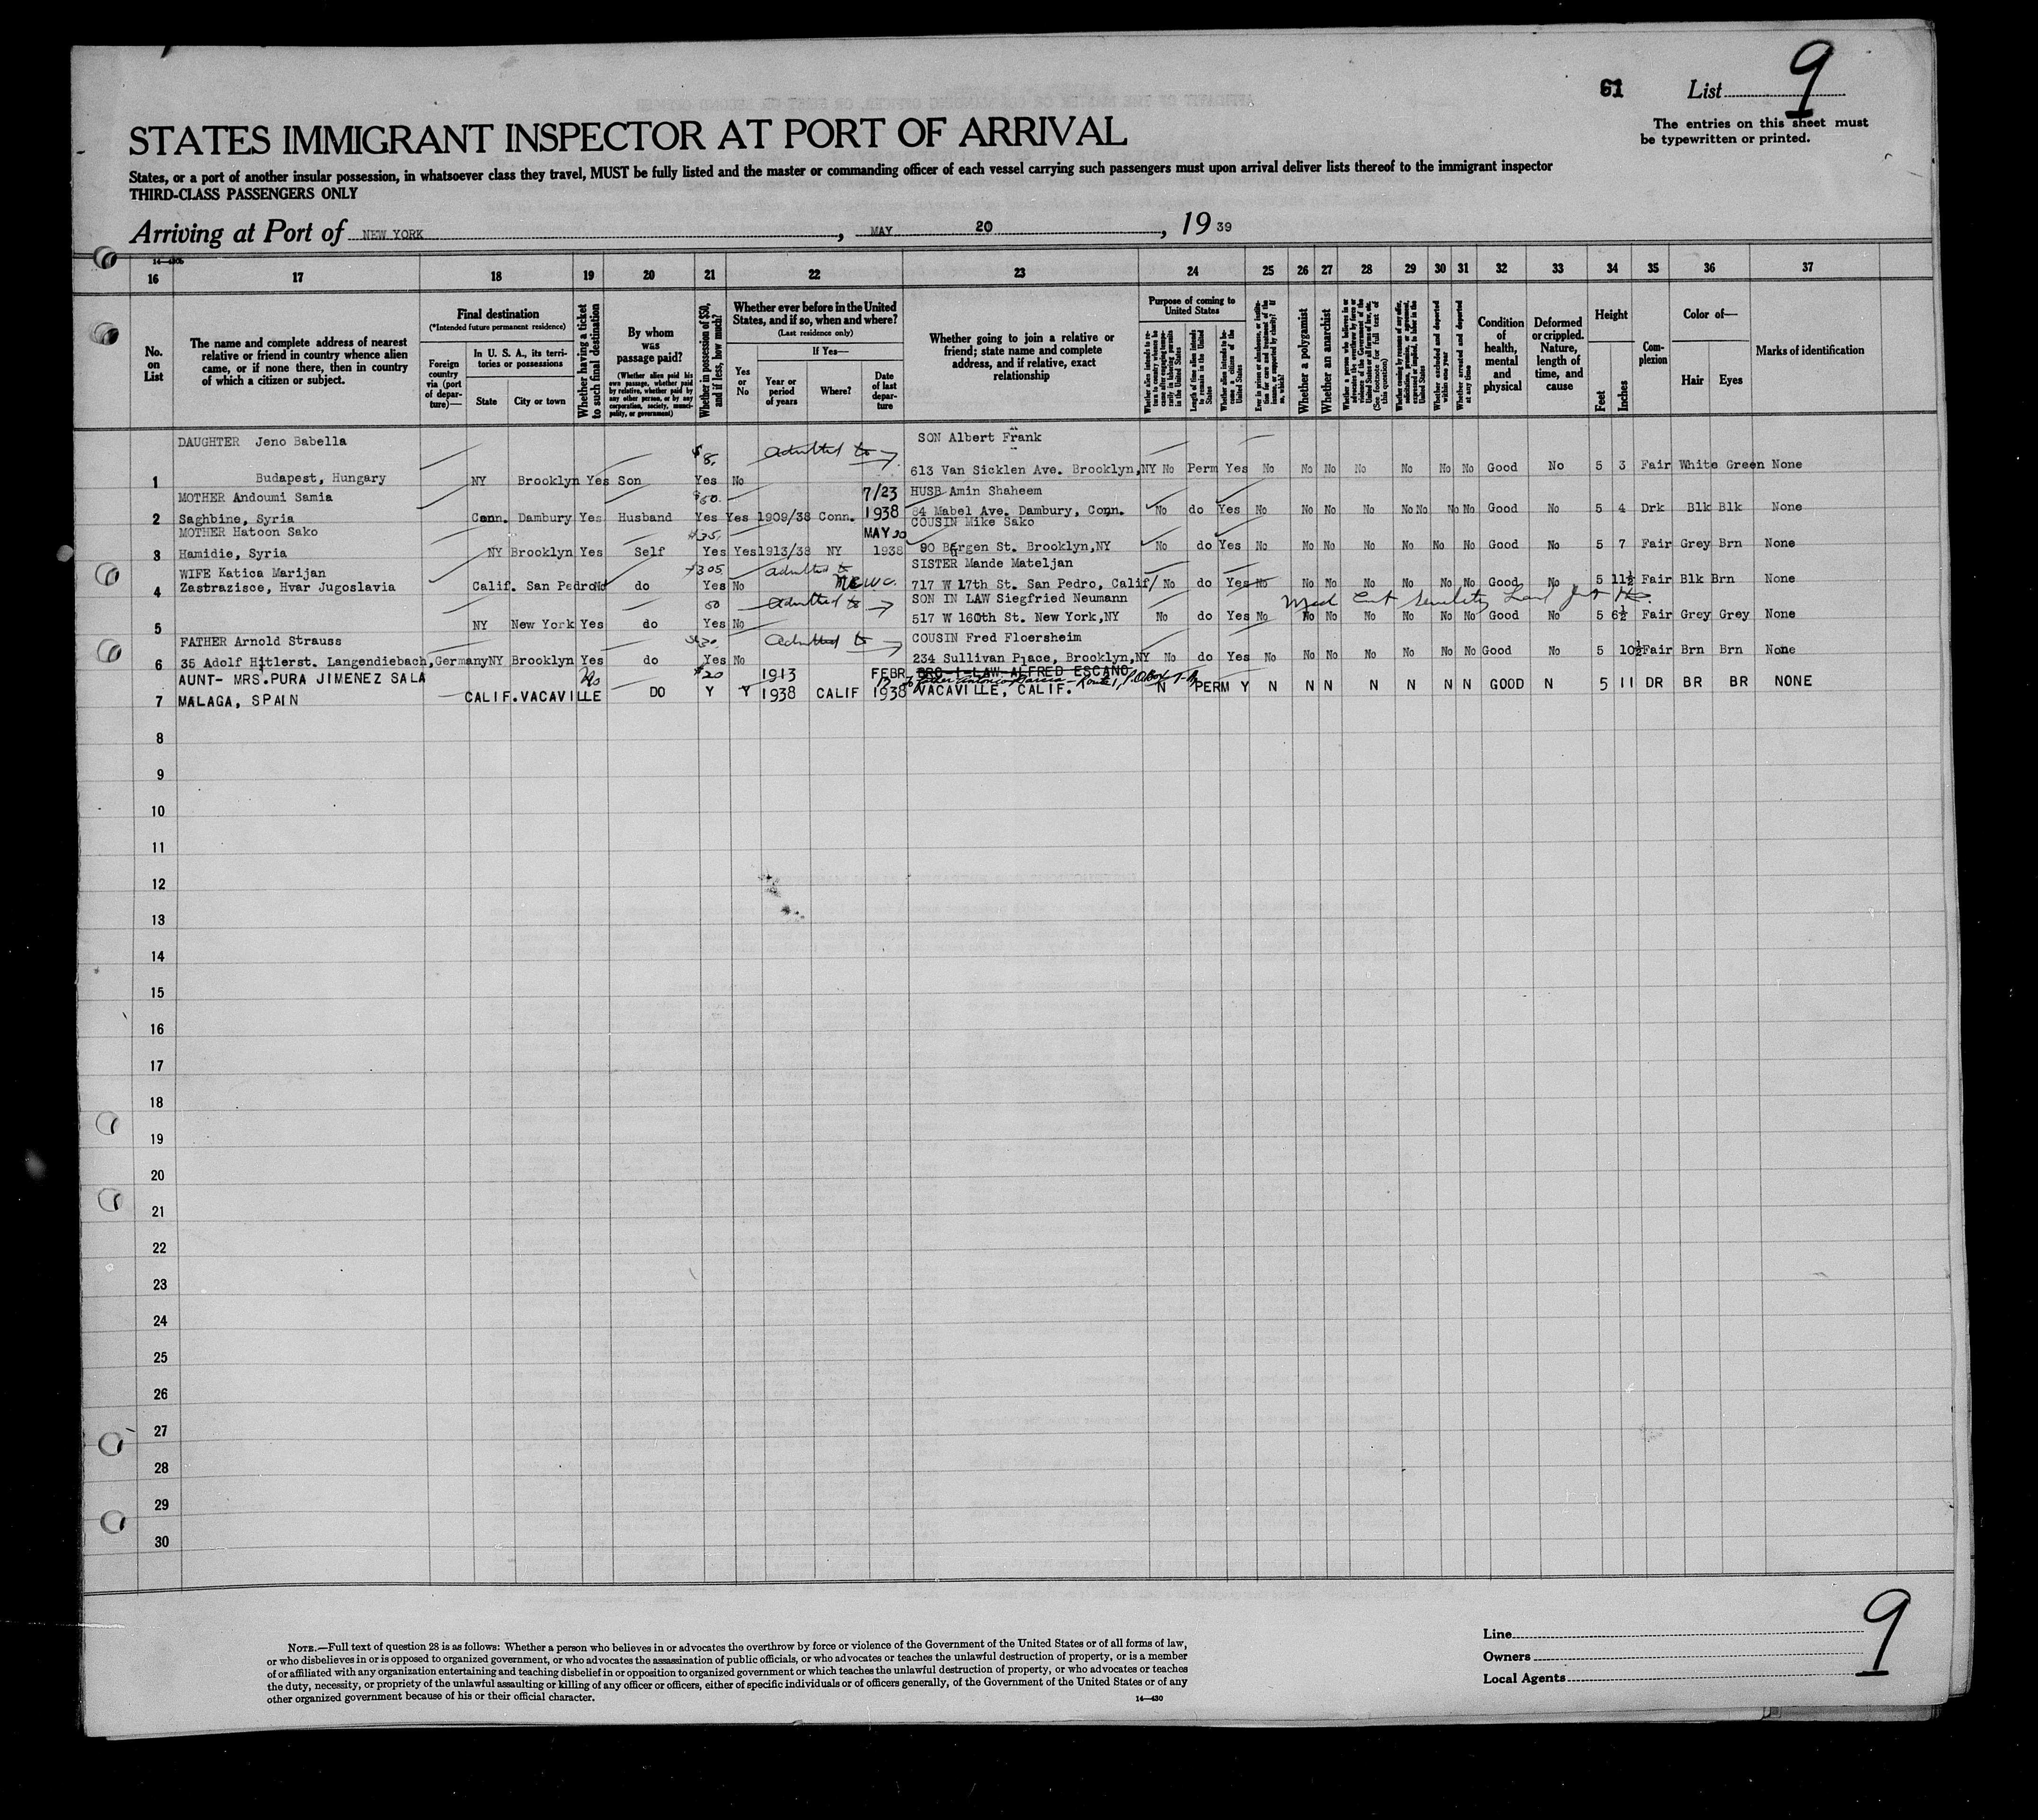 61 List 9
The entries on this sheet must
be typewritten or printed.
STATES IMMIGRANT INSPECTOR AT PORT OF ARRIVAL
States, or a port of another insular possession, in whatsoever class they travel, MUST be fully listed and the master or commanding officer of each vessel carrying such passengers must upon arrival deliver lists thereof to the immigrant inspector
THIRD-CLASS PASSENGERS ONLY
Arriving at Port of NEW YORK, MAY 20, 1939
16 17 18 19 20 21 22 23 24 25 26 27 28 29 30 31 32 33 34 35 36 37
No. on List
The name and complete address of nearest relative or friend in country whence alien came, or if none there, then in country of which a citizen or subject.
Final destination
(*Intended future permanent residence)
Foreign country via (port of departure)—
In U. S. A., its territories or possessions
State
City or town
Whether having a ticket to such final destination
By whom was passage paid?
(Whether alien paid his own passage, whether paid by relative, whether paid by any other person, or by any corporation, society, municipality, or government)
Whether in possession of $50, and if less, how much?
Whether ever before in the United States, and if so, when and where?
(Last residence only)
Yes or No
If Yes—
Year or period of years
Where?
Date of last departure
Whether going to join a relative or friend; state name and complete address, and if relative, exact relationship
Purpose of coming to United States
Length of time alien intends to remain in the United States
Whether alien intends to become a citizen of the United States
Whether a polygamist
Whether an anarchist
Whether excluded and deported within one year
Whether arrested and deported at any time
Condition of health, mental and physical
Deformed or crippled. Nature, length of time, and cause
Height
Feet
Inches
Complexion
Color of—
Hair
Eyes
Marks of identification
DAUGHTER Jeno Babella $8. admitted to SON Albert Frank
1 Budapest, Hungary NY Brooklyn Yes Son Yes No 613 Van Sicklen Ave. Brooklyn,NY No Perm Yes No No No No No No No Good No 5 3 Fair White Green None
MOTHER Andoumi Samia $50. 7/23 HUSB Amin Shaheem
2 Saghbine, Syria Conn. Dambury Yes Husband Yes Yes 1909/38 Conn. 1938 84 Mabel Ave. Dambury, Conn. No do Yes No No No No No No No No Good No 5 4 Drk Blk Blk None
MOTHER Hatoon Sako $35. MAY 20 COUSIN Mike Sako
3 Hamidie, Syria NY Brooklyn Yes Self Yes Yes 1913/38 NY 1938 90 Bergen St. Brooklyn,NY No do Yes No No No No No No No Good No 5 7 Fair Grey Brn None
WIFE Katica Marijan $305 admitted to SISTER Mande Mateljan
4 Zastrazisce, Hvar Jugoslavia Calif. San Pedro No do Yes No 717 W 17th St. San Pedro, Calif/ No do Yes No No No No No No No Good No 5 11½ Fair Blk Brn None
50 admitted to SON IN LAW Siegfried Neumann Med Cert Senility
5 NY New York Yes do Yes No 517 W 160th St. New York,NY No do Yes No No No No No No No Good No 5 6½ Fair Grey Grey None
FATHER Arnold Strauss $30. admitted to COUSIN Fred Floersheim
6 35 Adolf Hitlerst. Langendiebach,Germany NY Brooklyn Yes do Yes No 234 Sullivan Place, Brooklyn,NY No do Yes No No No No No No No Good No 5 10½ Fair Brn Brn None
AUNT- MRS.PURA JIMENEZ SALA No $20 1913 FEBR BRO-I-LAW ALFRED ESCANO
7 MALAGA, SPAIN CALIF. VACAVILLE DO Y Y 1938 CALIF 1938 VACAVILLE, CALIF. N PERM Y N N N N N N N GOOD N 5 11 DR BR BR NONE
8
9
10
11
12
13
14
15
16
17
18
19
20
21
22
23
24
25
26
27
28
29
30
NOTE.—Full text of question 28 is as follows: Whether a person who believes in or advocates the overthrow by force or violence of the Government of the United States or of all forms of law,
or who disbelieves in or is opposed to organized government, or who advocates the assassination of public officials, or who advocates or teaches the unlawful destruction of property, or is a member
of or affiliated with any organization entertaining and teaching disbelief in or opposition to organized government or which teaches the unlawful destruction of property, or who advocates or teaches
the duty, necessity, or propriety of the unlawful assaulting or killing of any officer or officers, either of specific individuals or of officers generally, of the Government of the United States or of any
other organized government because of his or their official character.
14—430
Line
Owners
Local Agents
9